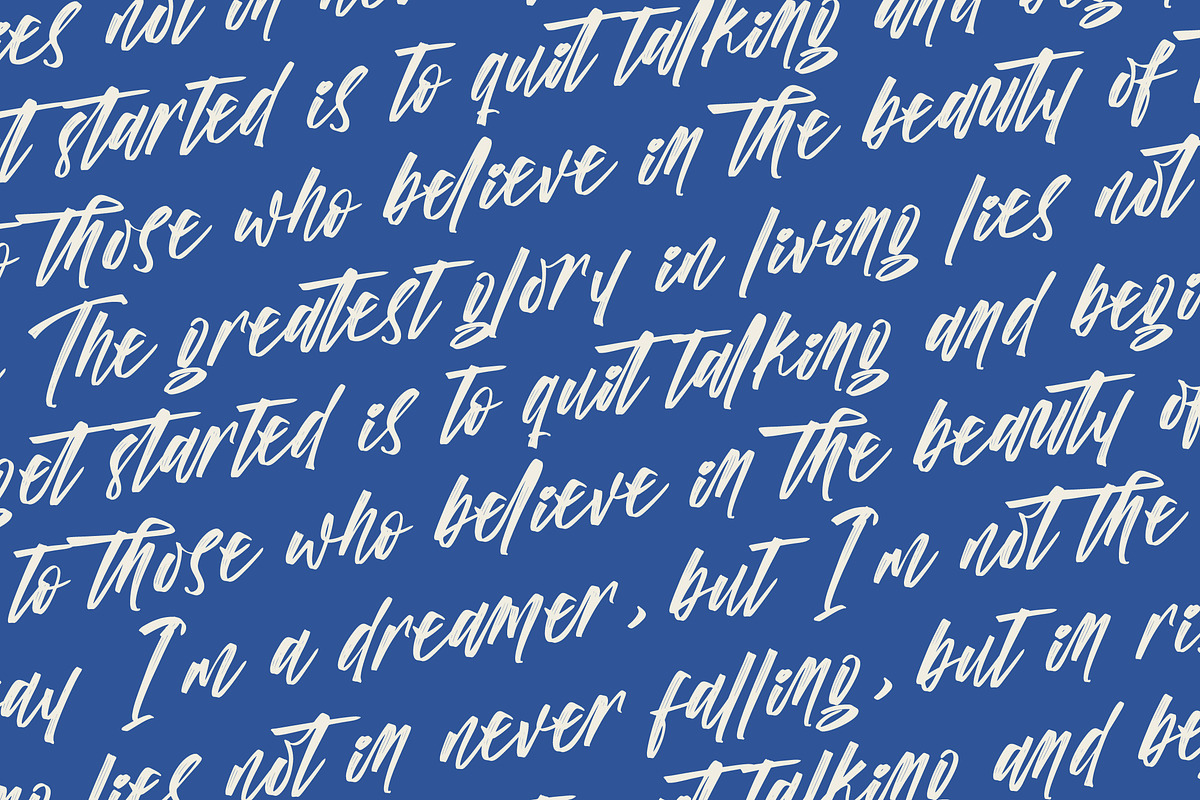 ies not in nev
t started is to quit talking and beg
o those who believe in the beauty of
The greatest glory in living lies not
get started is to quit talking and begi
to those who believe in the beauty of
ay I m a dreamer, but I m not the
lies not in never falling, but in ri
talking and be